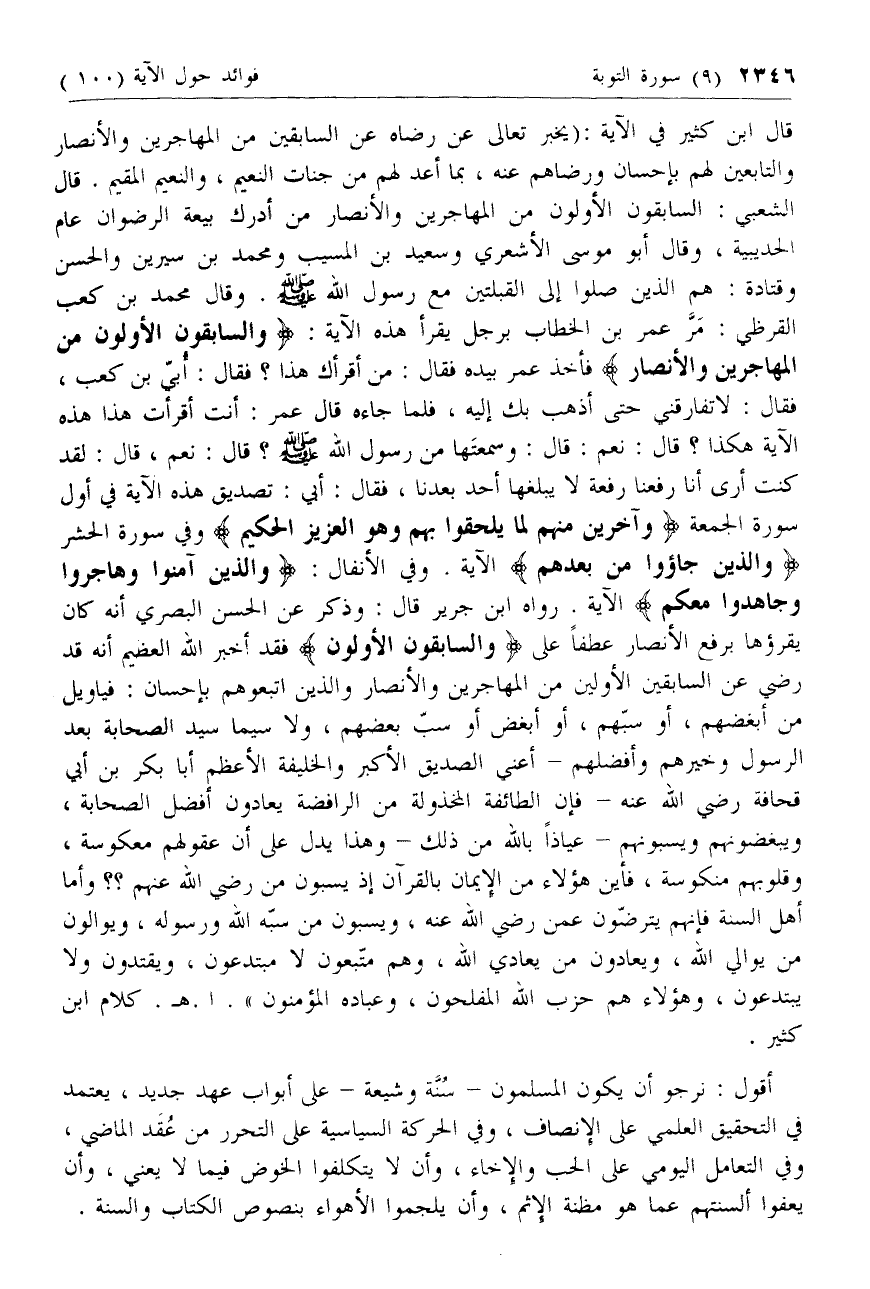 ٢٣٤٦ (٩) سورة التوبة فوائد حول الآية (١٠٠)
قال ابن كثير في الآية :(يخبر تعالى عن رضاه عن السابقين من المهاجرين والأنصار
والتابعين لهم بإحسان ورضاهم عنه ، بما أعد لهم من جنات النعيم ، والنعيم المقيم . قال
الشعبي : السابقون الأولون من المهاجرين والأنصار من أدرك بيعة الرضوان عام
الحديبية ، وقال أبو موسى الأشعري وسعيد بن المسيب ومحمد بن سيرين والحسن
وقتادة : هم الذين صلوا إلى القبلتين مع رسول الله ﷺ . وقال محمد بن كعب
القرظي : مَرَّ عمر بن الخطاب برجل يقرأ هذه الآية : ﴿ والسابقون الأولون من
المهاجرين والأنصار ﴾ فأخذ عمر بيده فقال : من أقرأك هذا ؟ فقال : أُبيّ بن كعب ،
فقال : لاتفارقني حتى أذهب بك إليه ، فلما جاءه قال عمر : أنت أقرأت هذا هذه
الآية هكذا ؟ قال : نعم : قال : وسمعتَها من رسول الله ﷺ ؟ قال : نعم ، قال : لقد
كنت أرى أنا رفعنا رفعة لا يبلغها أحد بعدنا ، فقال : أبي : تصديق هذه الآية في أول
سورة الجمعة ﴿ وآخرين منهم لما يلحقوا بهم وهو العزيز الحكيم ﴾ وفي سورة الحشر
﴿ والذين جاؤوا من بعدهم ﴾ الآية . وفي الأنفال : ﴿ والذين آمنوا وهاجروا
وجاهدوا معكم ﴾ الآية . رواه ابن جرير قال : وذكر عن الحسن البصري أنه كان
يقرؤها برفع الأنصار عطفاً على ﴿ والسابقون الأولون ﴾ فقد أخبر الله العظيم أنه قد
رضي عن السابقين الأولين من المهاجرين والأنصار والذين اتبعوهم بإحسان : فياويل
من أبغضهم ، أو سبّهم ، أو أبغض أو سبّ بعضهم ، ولا سيما سيد الصحابة بعد
الرسول وخيرهم وأفضلهم – أعني الصديق الأكبر والخليفة الأعظم أبا بكر بن أبي
قحافة رضي الله عنه – فإن الطائفة المخذولة من الرافضة يعادون أفضل الصحابة ،
ويبغضونهم ويسبونهم – عياذاً بالله من ذلك – وهذا يدل على أن عقولهم معكوسة ،
وقلوبهم منكوسة ، فأين هؤلاء من الإيمان بالقرآن إذ يسبون من رضي الله عنهم ؟؟ وأما
أهل السنة فإنهم يترضّون عمن رضي الله عنه ، ويسبون من سبّه الله ورسوله ، ويوالون
من يوالي الله ، ويعادون من يعادي الله ، وهم متّبعون لا مبتدعون ، ويقتدون ولا
يبتدعون ، وهؤلاء هم حزب الله المفلحون ، وعباده المؤمنون » . ا . هـ . كلام ابن
كثير .
أقول : نرجو أن يكون المسلمون – سُنَّة وشيعة – على أبواب عهد جديد ، يعتمد
في التحقيق العلمي على الإنصاف ، وفي الحركة السياسية على التحرر من عُقَد الماضي ،
وفي التعامل اليومي على الحب والإخاء ، وأن لا يتكلفوا الخوض فيما لا يعني ، وأن
يعفوا ألسنتهم عما هو مظنة الإثم ، وأن يلجموا الأهواء بنصوص الكتاب والسنة .